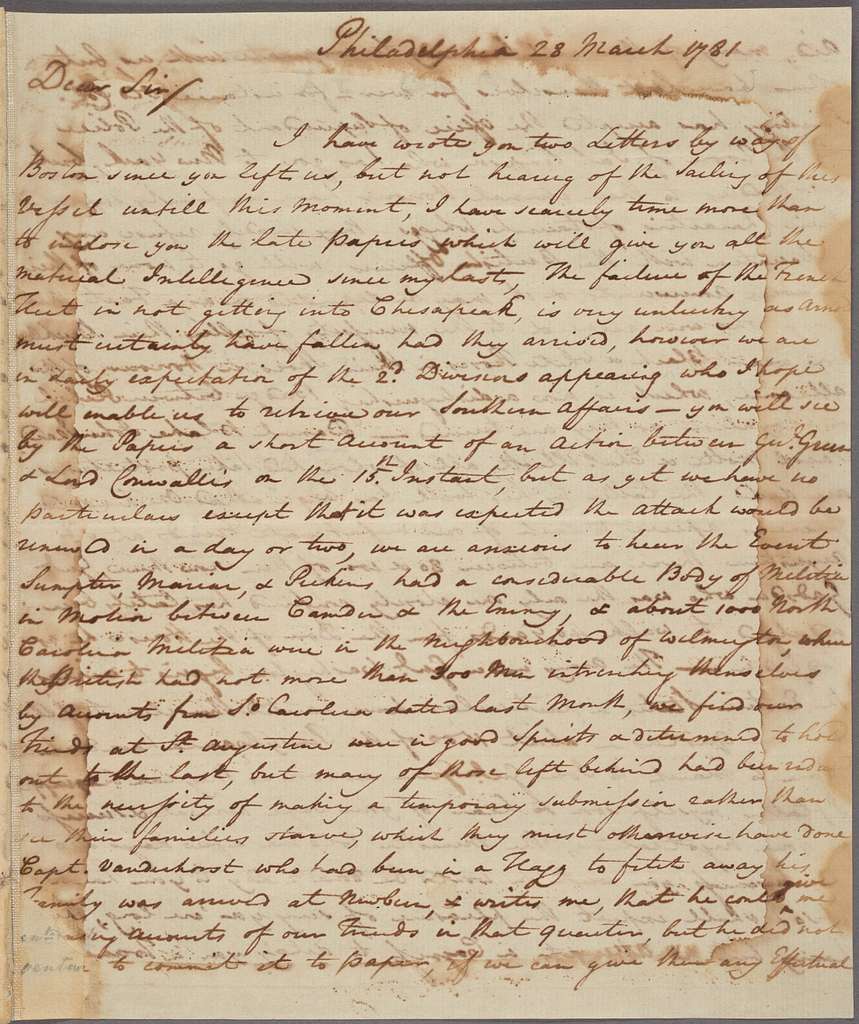 Philadelphia 28 March 1781
Dear Sir/
I have wrote you two Letters by way of
Boston since you left us, but not hearing of the Sailing of this
Vessel untill this Moment, I have scarcely time more than
to inclose you the late Papers which will give you all the
material Intelligence since my last, The failure of the French
Fleet in not getting into Chesapeak, is very unlucky as Arno
must certainly have fallen had they arrived, however we are
in daily expectation of the 2d. Divisions appearing who I hope
will enable us to retrieve our Southern Affairs — you will see
by the Papers a short Account of an Action between Genl. Green
& Lord Cornwallis on the 15th. Instant, but as yet we have no
particulars except that it was expected the attack would be
renewed in a day or two, we are anxious to hear the Event
Sumpter, Marian, & Pickens had a considerable Body of Militia
in Motion between Camden & the Enemy, & about 1000 North
Carolina Militia were in the Neighbourhood of Wilmington, where
the British had not more than 300 Men intrenching themselves
by Accounts from So. Carolina dated last Month, we find our
Friends at St. Augustine were in good Spirits & determined to hold
out to the last, but many of those left behind had been redu
to the necessity of making a temporary submission rather than
see their families starve, which they must otherwise have done
Capt. Vanderhorst who had been in a Flagg to fetch away his
Family was arrived at Newbern, & writes me, that he could give me
accounts of our Friends in that quarter, but he did not
venture to commit it to paper, if we can give them any Effectual